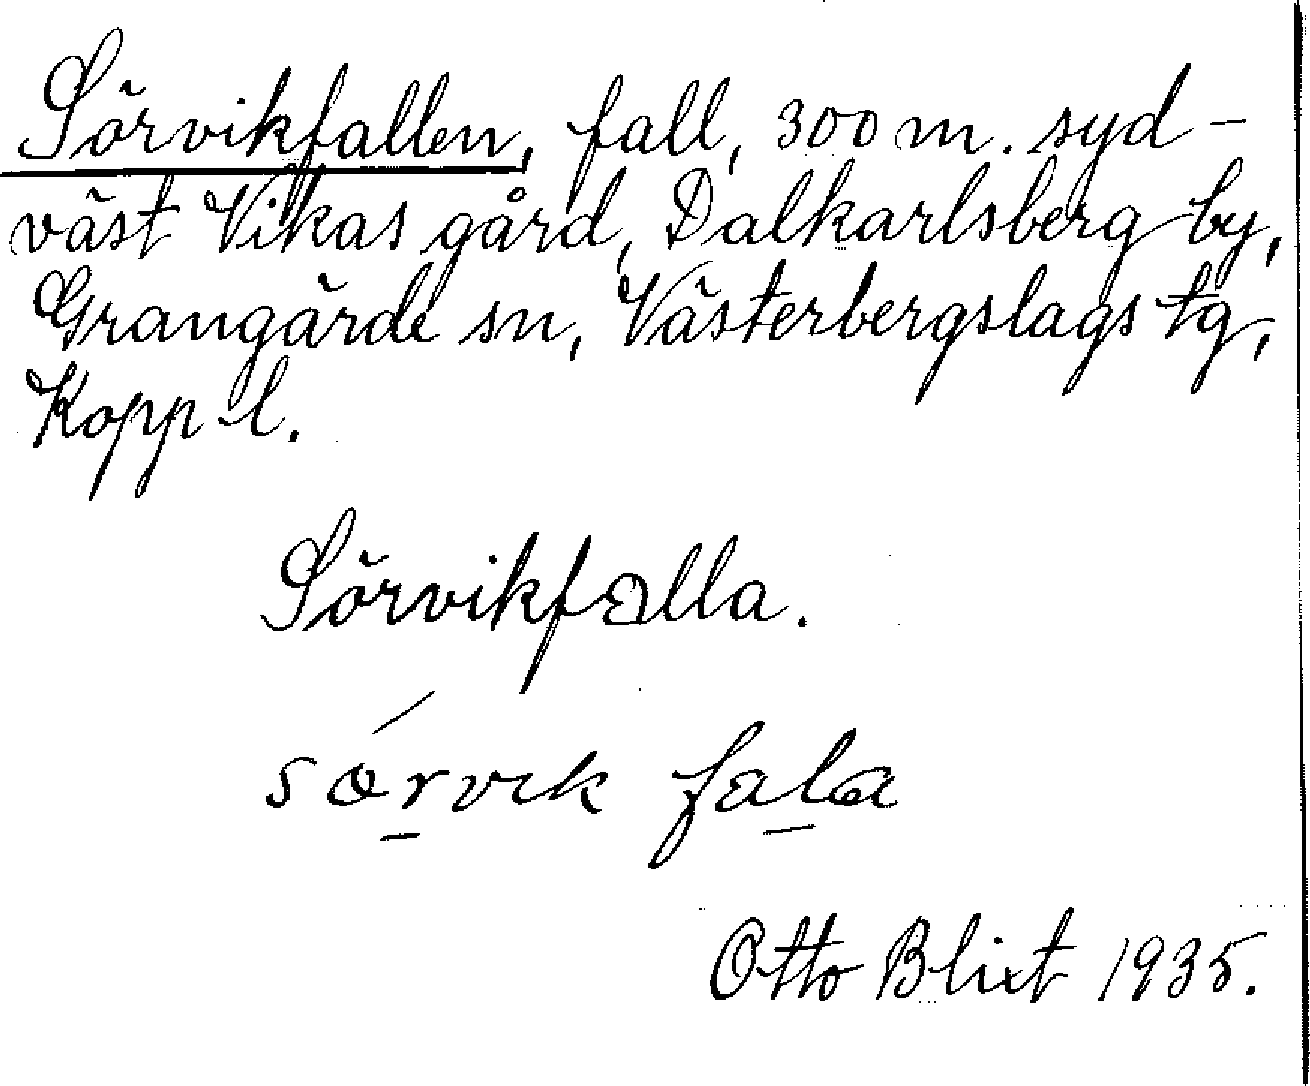 Sörvikfallen, fall, 300 m. syd-
väst Vikas gård, Dalkarlsberg by,
Grangärde sn, Västerbergslags tg,
Kopp l.
Sörvikfalla.
sɵ́r̲vɩk fal̲a
Otto Blixt 1935.